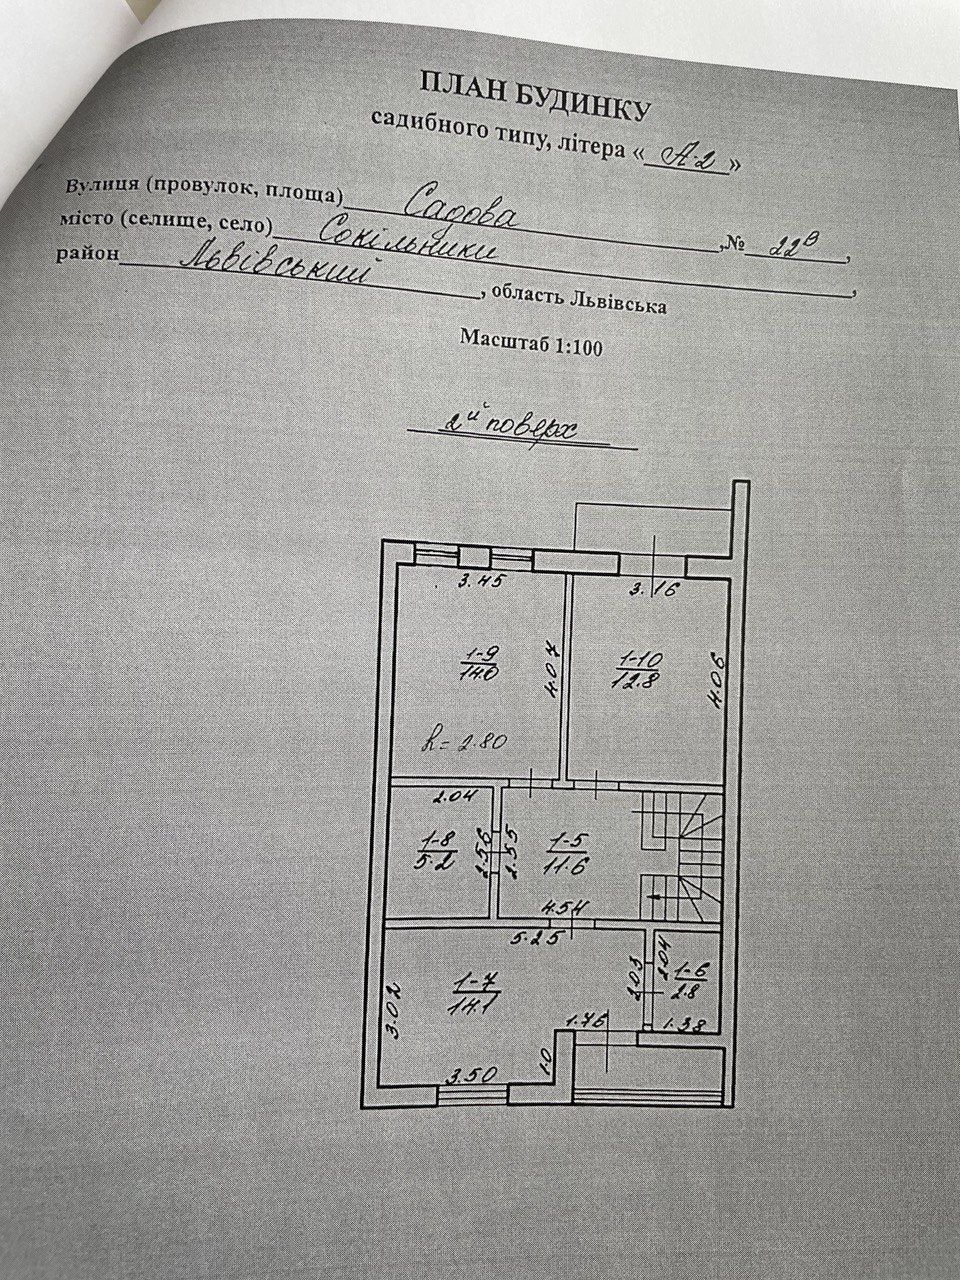 ПЛАН БУДИНКУ
садибного типу, літера « А-2 »
Вулиця (провулок, площа) Садова ,№ 22В ,
місто (селище, село) Сокільники ,
район Львівський , область Львівська
Масштаб 1:100
2й поверх
3.45
3.16
1-9
14.0
4.07
1-10
12.8
4.06
h = 2.80
2.04
1-8
5.2
2.56
2.55
1-5
11.6
4.54
5.25
1-7
14.1
3.02
2.03
2.04
1-6
2.8
1.38
1.76
1.0
3.50